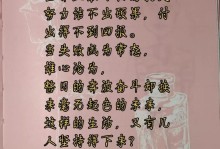 努力结不出硕果，付
出得不到回报。
当失败成为常态，
谁心治为，
整日的幸波奋斗却换
来毫无起色的未来，
这样的生活，又有几
人坚持得下来？